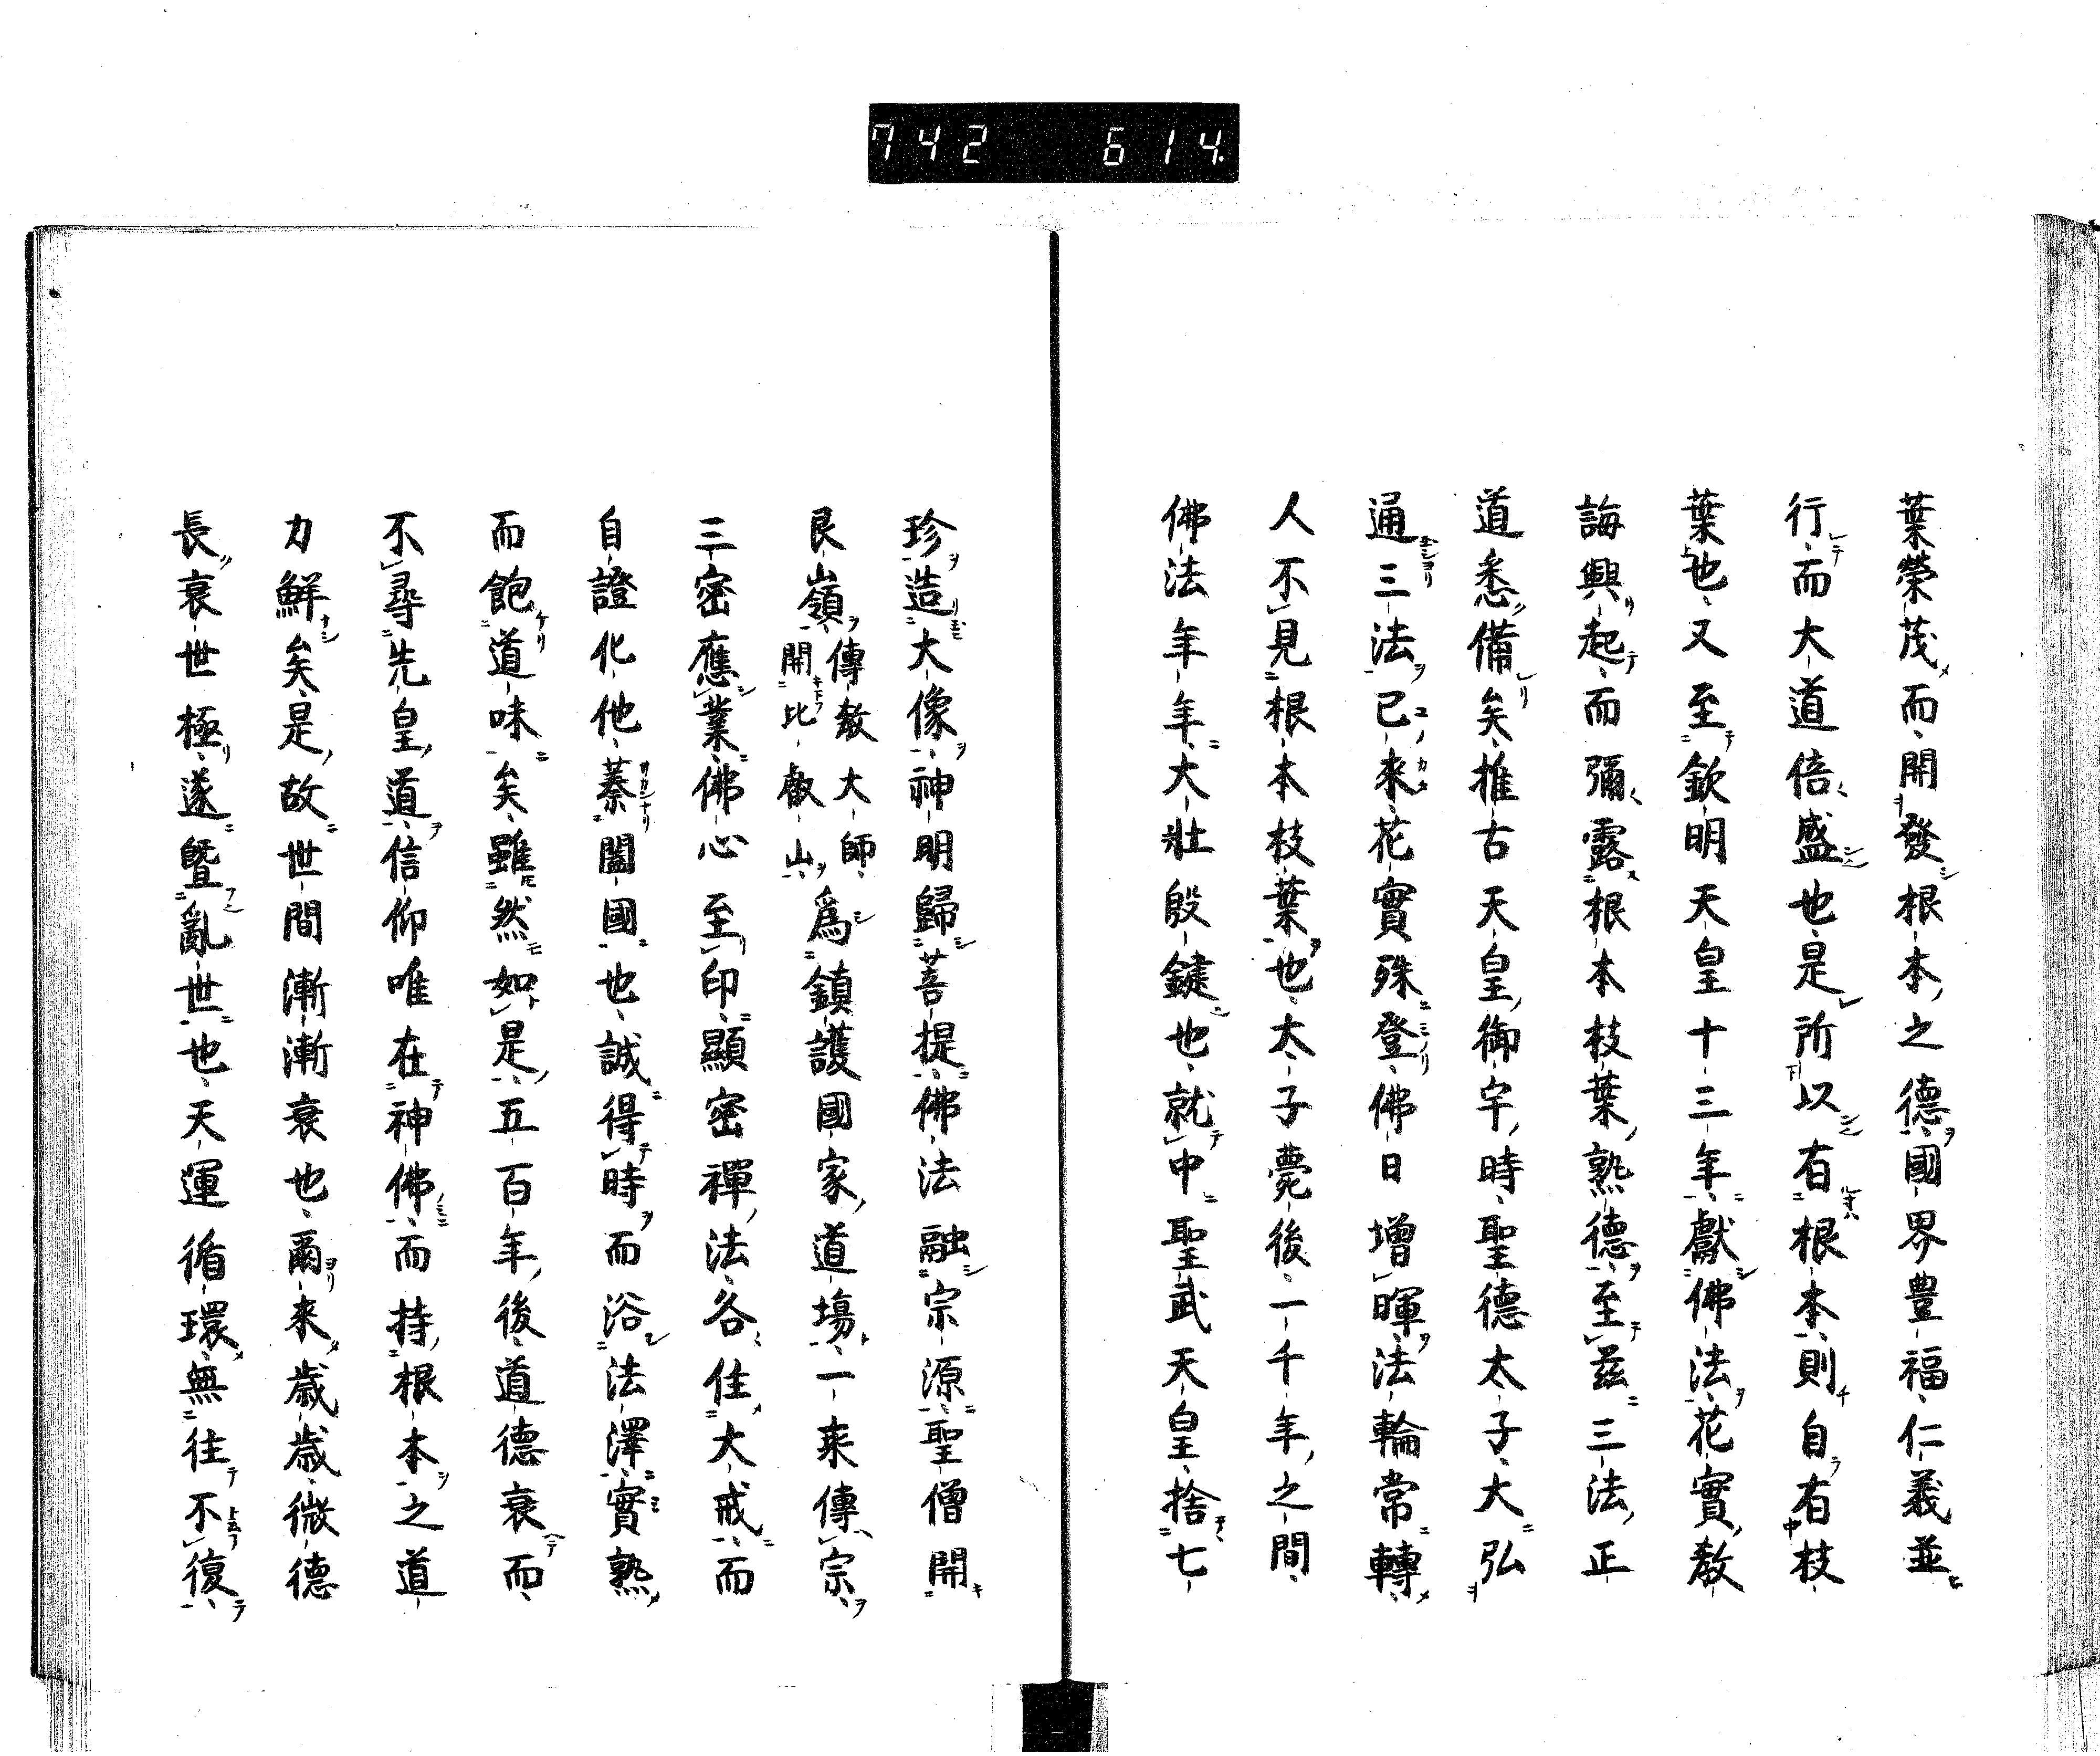 742 614
葉榮茂而開發根本之德國界豊福仁義並
行而大道倍盛也是所以有根本則自有枝
葉也又至欽明天皇十三年獻佛法花實教
誨興起而彌露根本枝葉熟德至茲三法正
道悉備矣推古天皇御宇時聖德太子大弘
通三法已來花實殊登佛日增暉法輪常轉
人不見根本枝葉也太子薨後一千年之間
佛法年年大壯殷鍵也就中聖武天皇捨七
珍造大像神明歸菩提佛法融宗源聖僧開
艮嶺傳教大師開比叡山爲鎮護國家道場一来傳宗
三密應業佛心至印顯密禪法各住大戒而
自證化他蓁闔國也誠得時而浴法澤實熟
而飽道味矣雖然如是五百年後道德衰而
不尋先皇道信仰唯在神佛而持根本之道
力鮮矣是故世間漸漸衰也爾來歲歲微德
長衰世極遂曁亂世也天運循環無往不復